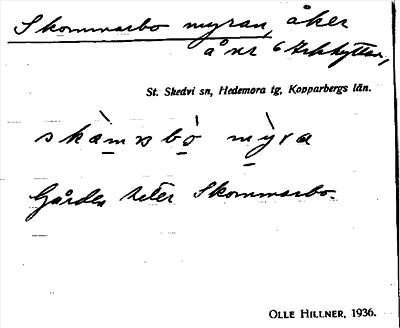 Skommarbo myran, åker
å nr 6 Arkhyttan,
St. Skedvi sn, Hedemora tg, Kopparbergs län.
skàmsbò mỳra
Gården heter Skommarbo.
OLLE HILLNER, 1936.